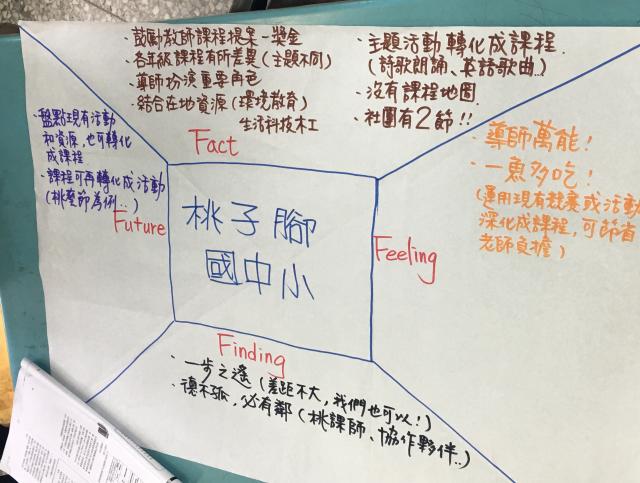 ・鼓勵教師課程提案－獎金
・各年級課程有所差異(主題不同)
・導師扮演重要角色
・結合在地資源(環境教育)
生活科技木工
Fact
・主題活動轉化成課程.
(詩歌朗誦、英語歌曲..)
・沒有課程地圖.
・社團有2節!!
・盤點現有活動
和資源,也可轉化
成課程
・課程可再轉化成活動
(桃藝節為例..)
Future
桃子腳
國中小
・導師萬能!
・一魚多吃!
(運用現有競賽或活動
深化成課程,可節省
老師負擔)
Feeling
Finding
・一步之遙(差距不大,我們也可以!)
・德不孤,必有鄰(桃課師、協作夥伴..)